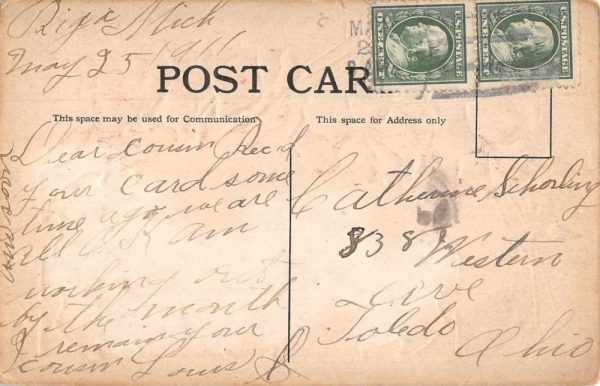 Riga Mich
May 25 1911
POST CAR
U.S. POSTAGE
ONE CENT
U.S. POSTAGE
ONE CENT
MA
This space may be used for Communication
Dear Cousin Rec'd
your card some
time ago we are
all O.K. am
working out
by the month
I remain your
cousin Louis S
soon
This space for Address only
Catherine Schorling
838 Western
Ave
Toledo
Ohio